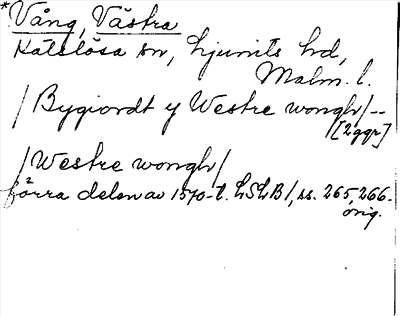 *Vång, Västra
Kålslösa sn, Ljunits hd,
Malm. l.
/Bygiordt y Westre wongh/--
[2ggr]
/Westre wongh/
förra delen av 1570-t. LSLB1, ss. 265, 266.
orig.